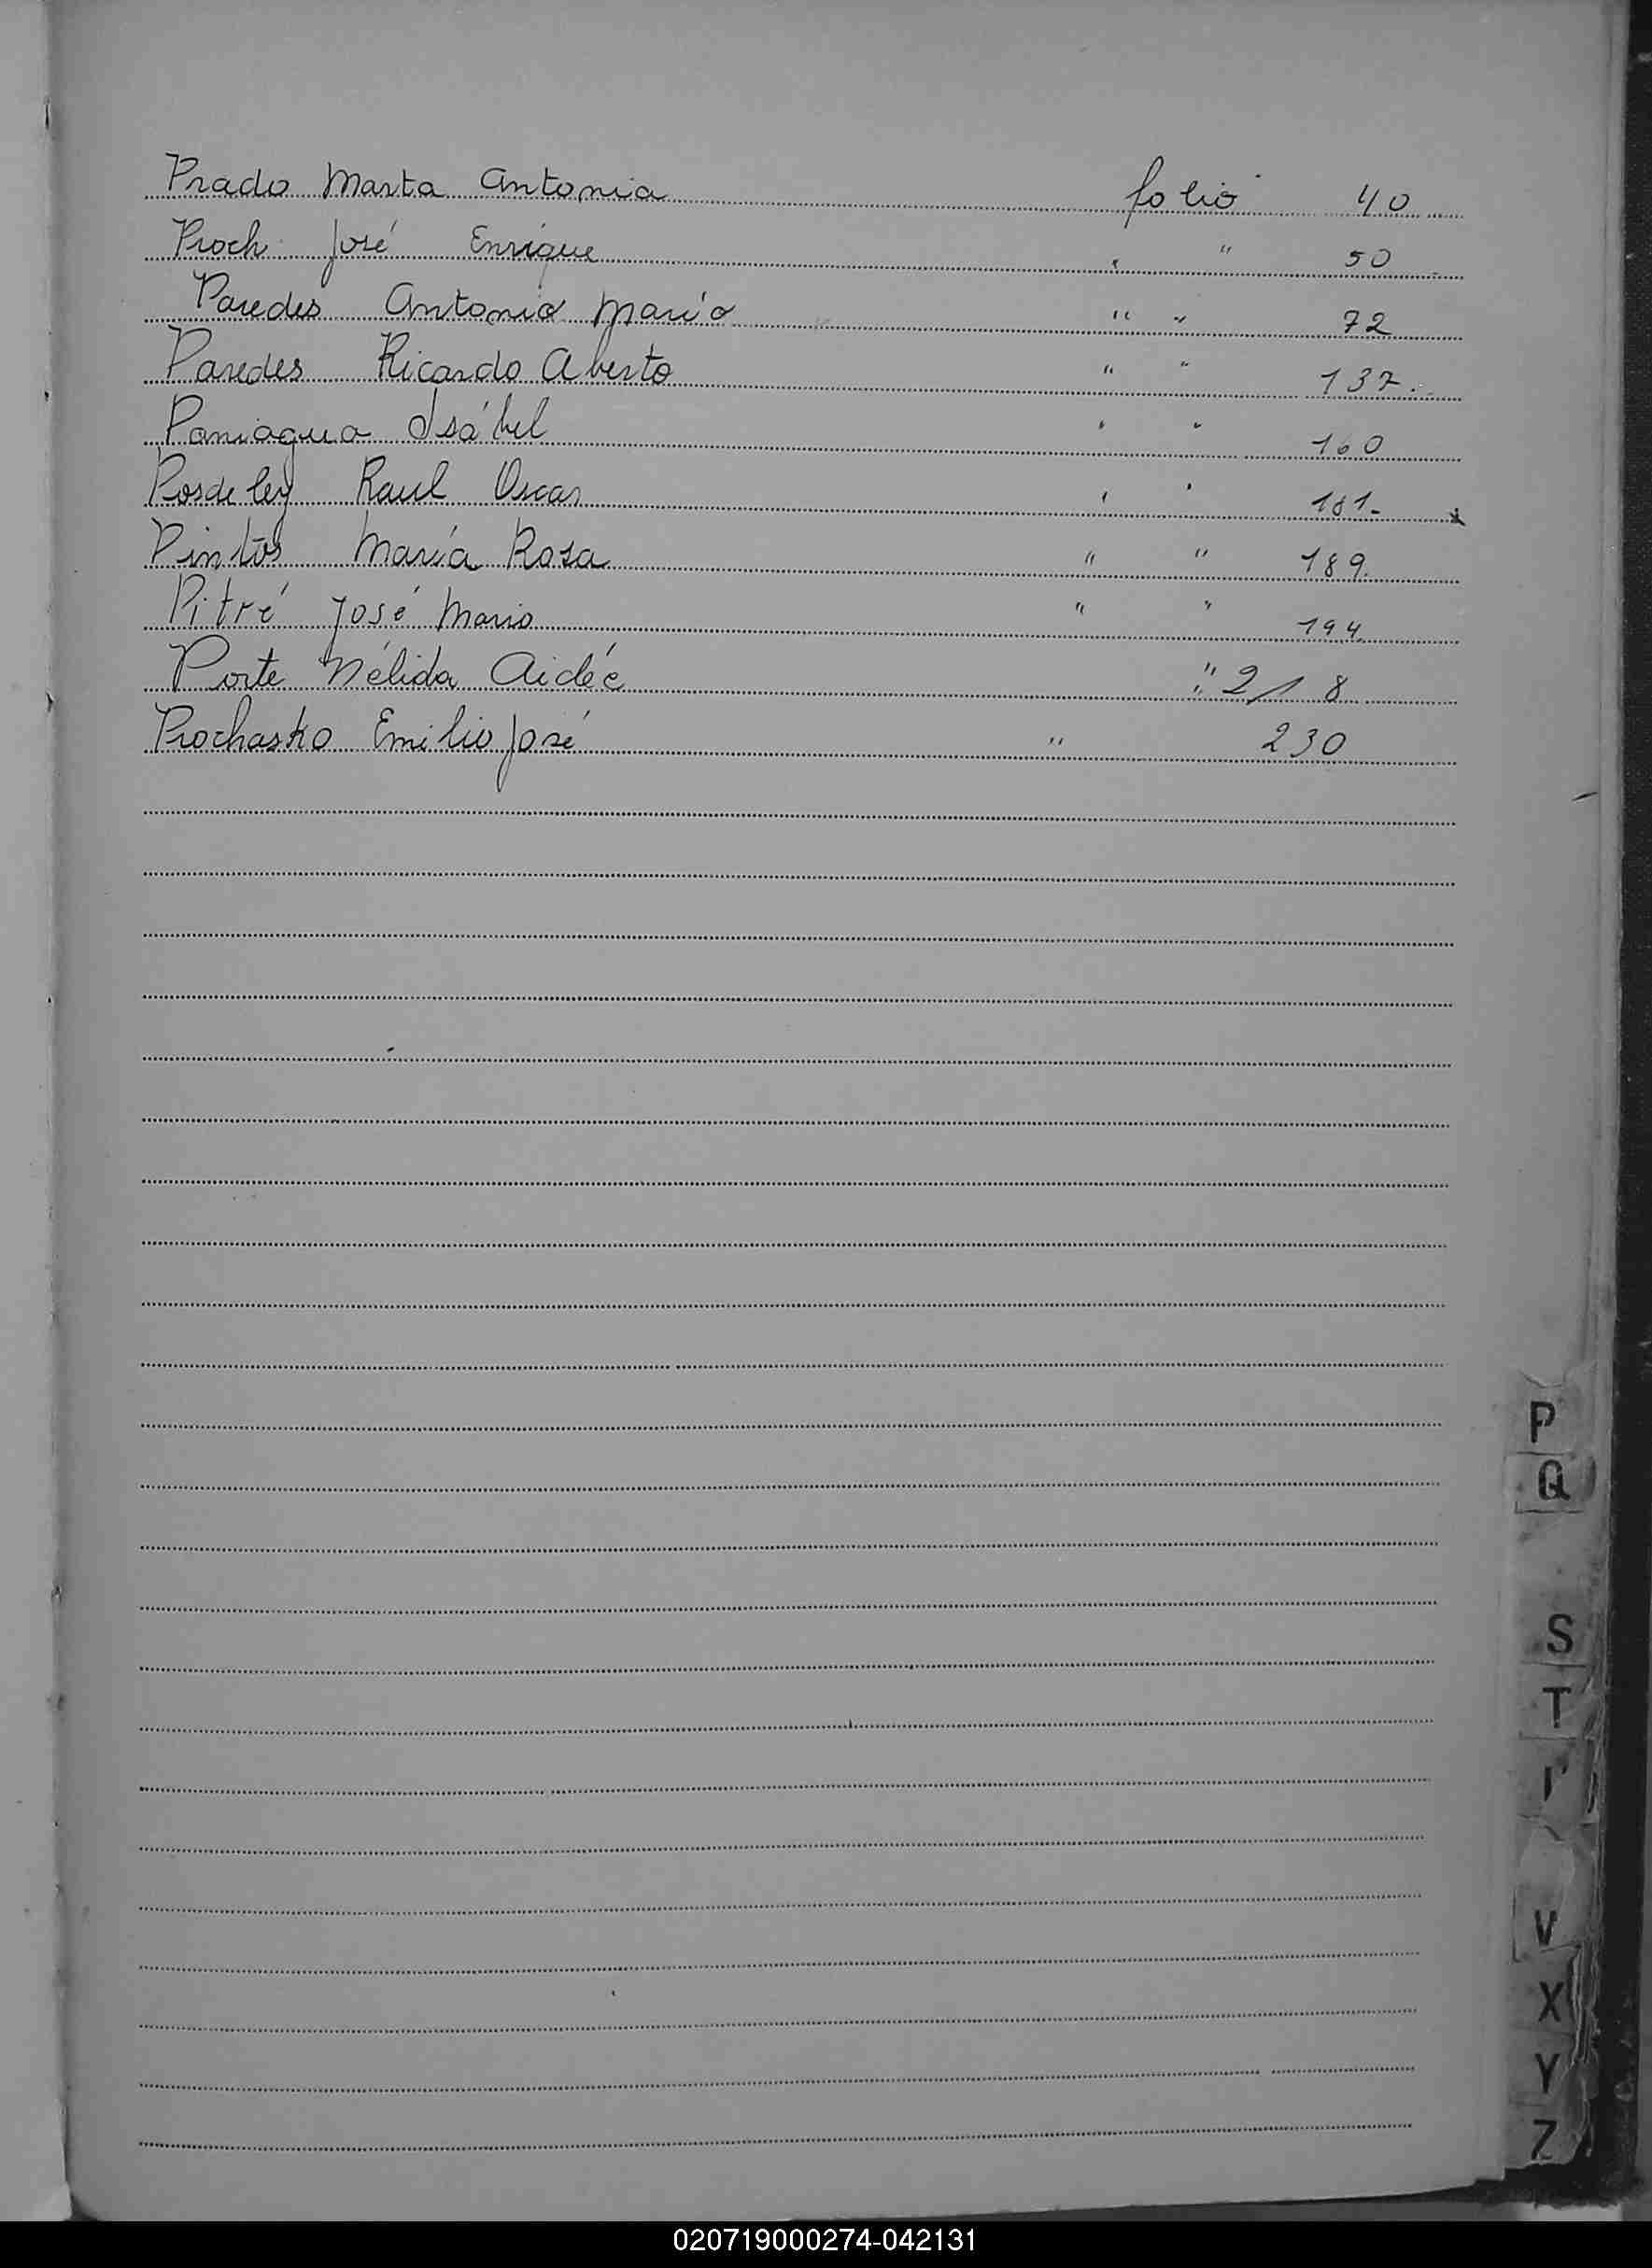 Prado Marta Antonia folio 40
Proch José Enrique " " 50
Paredes Antonio Mario " " 72
Paredes Ricardo Aberto " " 137.
Paniagua Isábel " " 160
Posdeley Raul Oscar " " 181-
Pintos María Rosa " " 189.
Pitré José Mario " " 194
Porte Nélida Aidée " " 218
Prochasko Emilio José " 230
P
Q
S
T
V
X
Y
Z
020719000274-042131